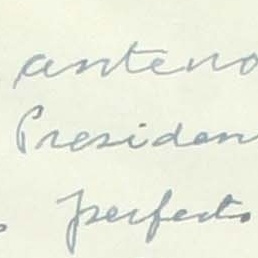 anteno
Presiden
perfecto